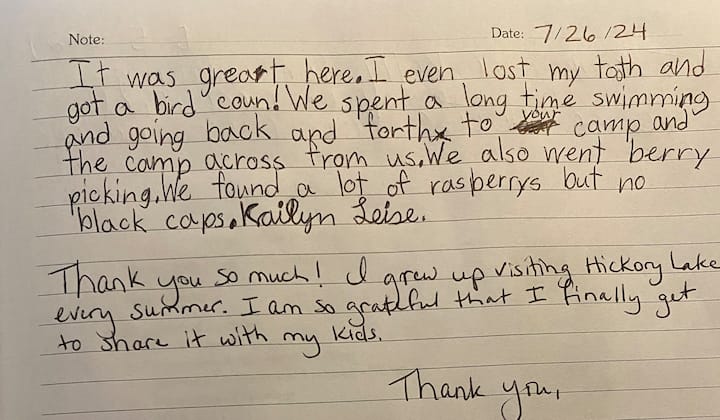 Note:
Date: 7/26/24
It was greart here. I even lost my toth and
got a bird coun! We spent a long time swimming
and going back and forth to your camp and
the camp across from us. We also went berry
picking. We found a lot of rasberrys but no
black caps. Kailyn Leise.
Thank you so much! I grew up visiting Hickory Lake
every summer. I am so grateful that I finally get
to share it with my kids.
Thank you,